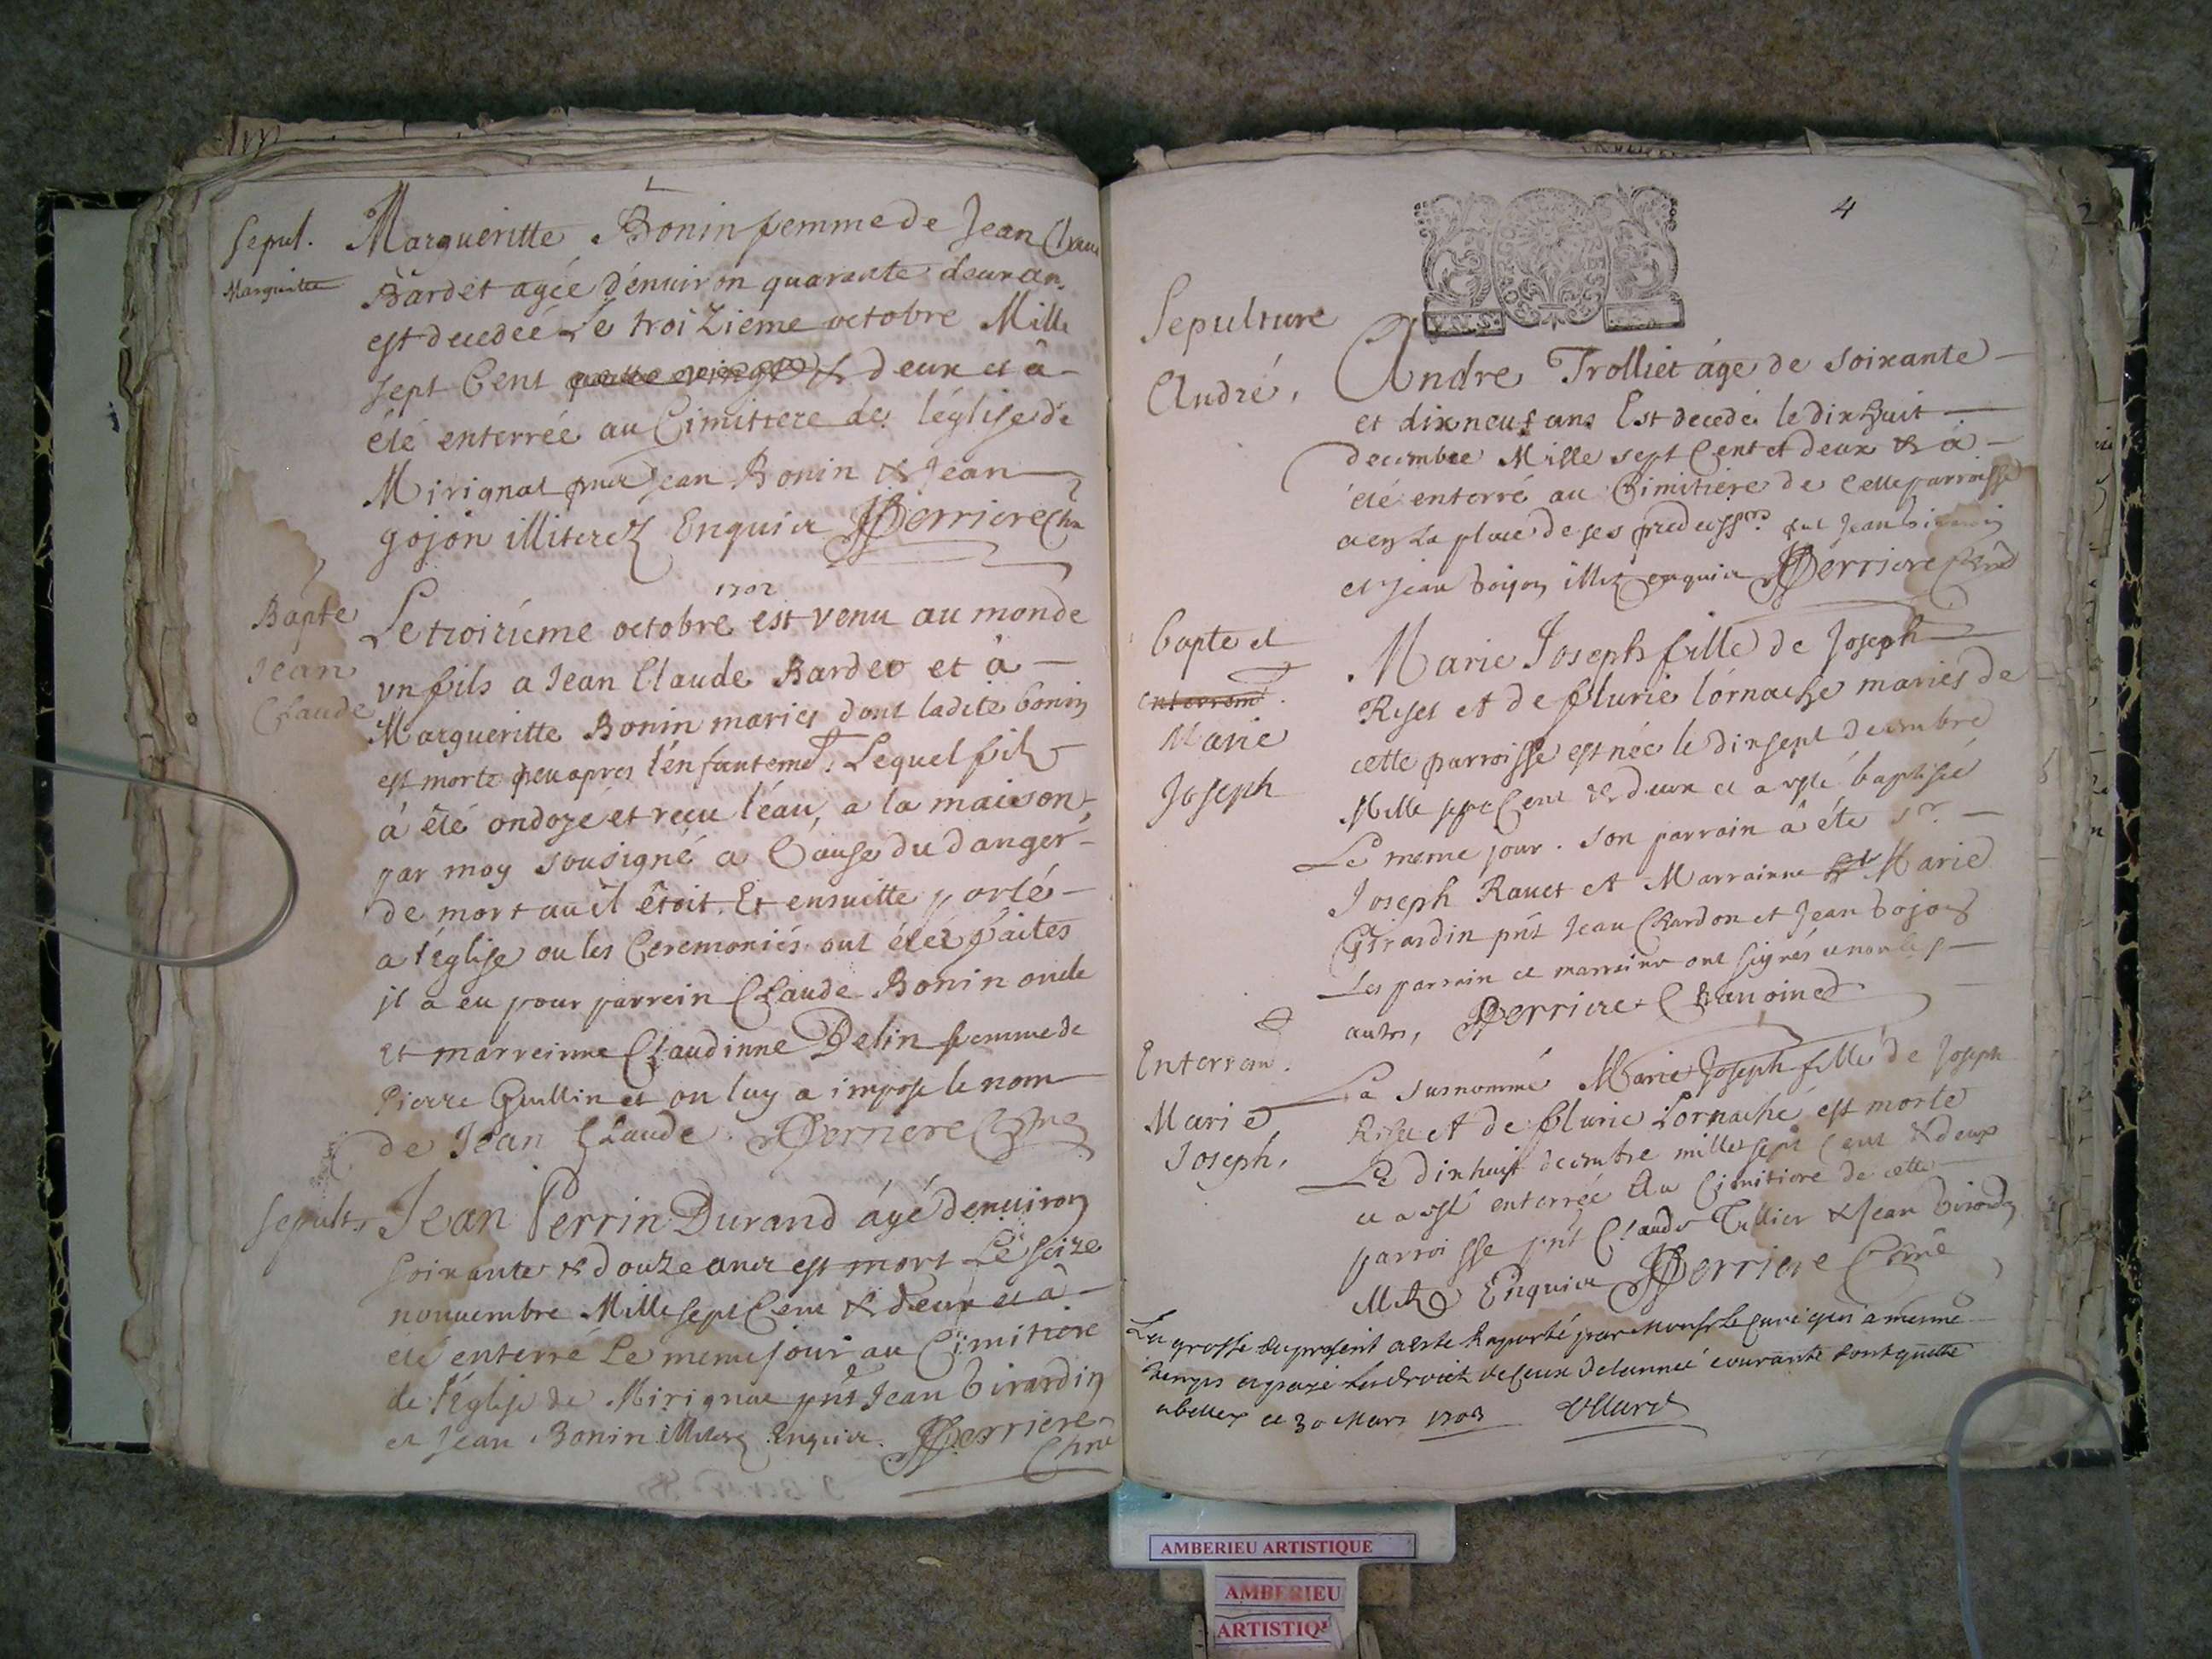 Sepul.
Margueritte
Margueritte Bonin femme de Jean Clau
Bardet agée d'enuiron quarante deux an
est decedeé Le troizieme octobre Mille
sept Cent & deux et â
été enterrée au Cimittere de l'église de
Mirignat Jean Bonin & Jean
gojon illiterez Enquier JPerriere Chn
1702
Bapte
Jean
Claude
Le troizieme octobre est venu au monde
vn fils a Jean Claude Bardet et â
Margueritte Bonin mariés dont ladite bonin
est morte peu apres l'enfantemt. Lequel fils
â été ondoze et reçu l'éau, a la maison
par moy sousigné a Cause du danger
de mort au il étoit. Et ensuitte porté
a l'église ou les Ceremoniés ont étez faites
il a eu pour parrein Claude Bonin oncle
et marreinne Claudinne Belin femme de
Pierre Guillin et on luy a impose le nom
de Jean Claude JPerriere Chne
Sepult.
Jean Perrin Durand âgé denuiron
soixante & douze ans est mort Le seize
nouuembre Mille sept Cent & deux et â
été enterré Le meme jour au Cimitiere
de l'Eglise de Mirignat pnt Jean Girardin
et Jean Bonin illiterez Enquier. JPerriere
Chne
4
Sepulture
André,
Andre Trolliet âge de soixante
et dix neuf ans Est decedé le dix huit
decembre Mille sept Cent et deux & â
été enterré au Cimitiere de Cette parroisse
a en La place de ses predecssrs Jean
et Jean Gojon illz enquier JPerriere Chnê
bapte et
enterremt
Marie
Joseph
Marie Joseph fille de Joseph
Riset et de flurie lornache mariés de
cette parroisse est née le dix sept decembre
Mille sept Cent & deux et a esté baptisée
Le meme jour. son parrain â été sr.
Joseph Rauet et Marrainne Marie
Girardin pnt Jean Chardon et Jean Gojon
Les parrain et marreine ont signés et non les
autres, JPerriere Chanoine
Enterremt.
Marie
Joseph,
La surnommé Marie Joseph fille de Joseph
Riset et de flurie Lornache est morte
Le dix huit decembre mille sept Cent & deux
et a esté enterrée Au Cimitiere de cette
parroisse pnt Claude Tellier & Jean Girardin
illitz Enquier JPerriere Chnê
La grosse du present a esté raporté par Monsr Le Curé qui a mesme
temps a payé Les droict de Ceux de lannée courante dont quitte
a belley ce 30 Mars 1703
AMBERIEU ARTISTIQUE
AMBERIEU
ARTISTIQ